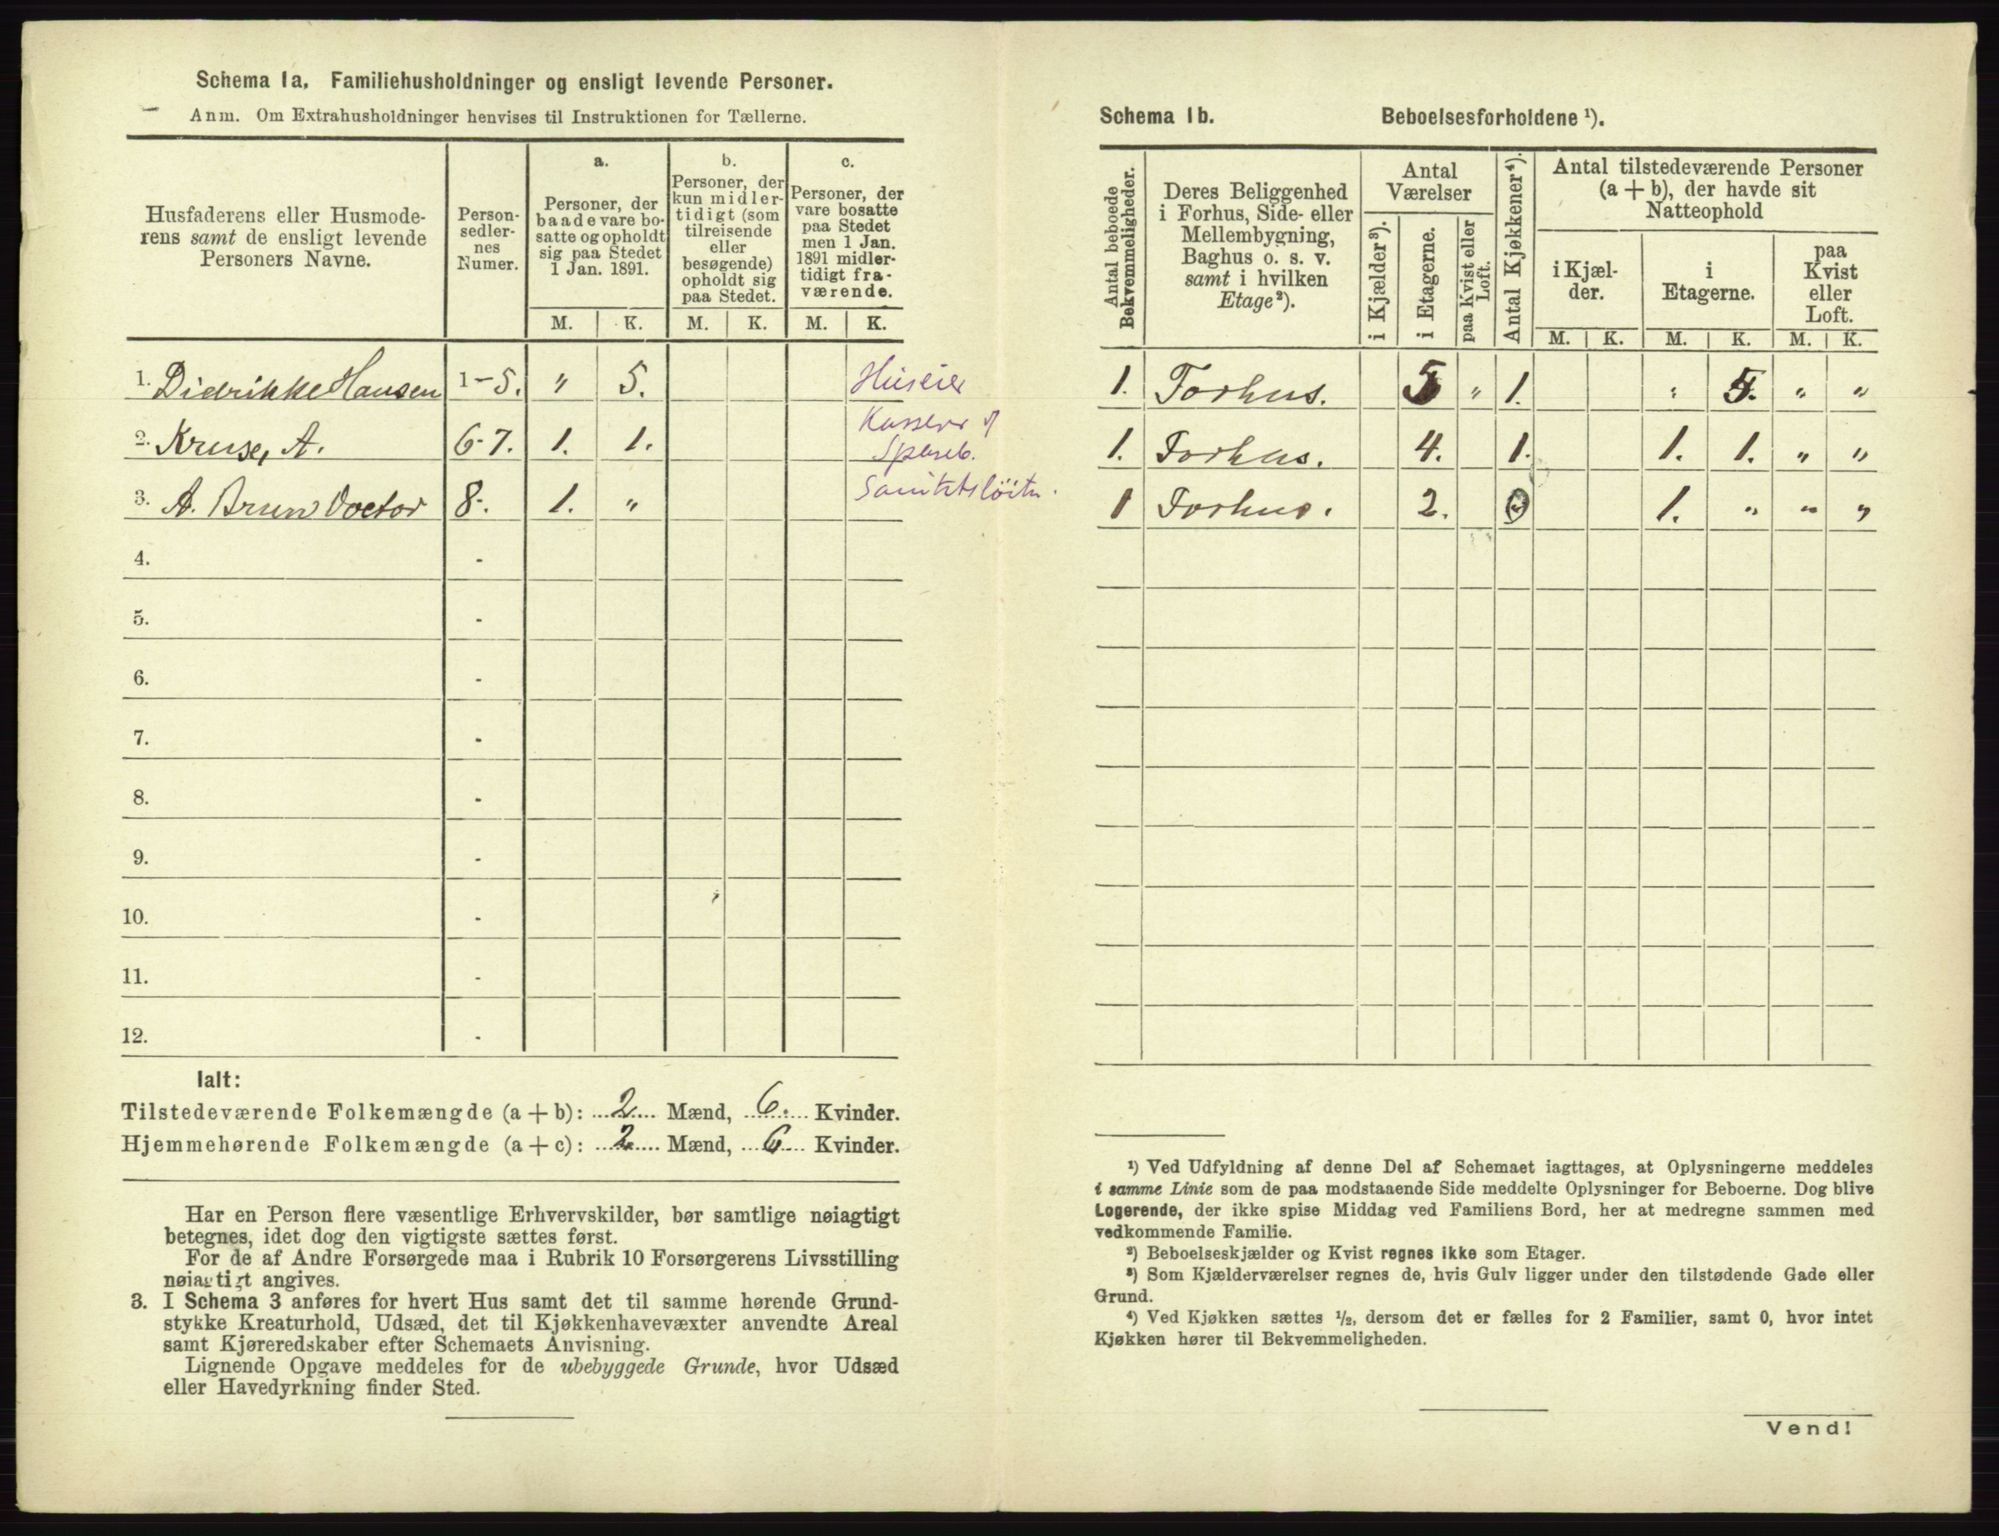 Schema 1a. Familiehusholdninger og ensligt levende Personer.
Anm. Om Extrahusholdninger henvises til Instruktionen for Tællerne.
Husfaderens eller Husmode-
rens samt de ensligt levende
Personers Navne.
Person-
sedler-
nes
Numer.
a.
Personer, der
baade vare bo-
satte og opholdt
sig paa Stedet
1 Jan. 1891.
b.
Personer, der
kun midler-
tidigt (som
tilreisende
eller
besøgende)
opholdt sig
paa Stedet.
c.
Personer, der
vare bosatte
paa Stedet
men 1 Jan.
1891 midler-
tidigt fra-
værende.
M. K. M. K. M. K.
1. Didrikke Hansen 1-5. " 5. Huseier
2. Kruse, A. 6-7. 1. 1. Kasserer
Spareb.
3. A. Brun Doctor 8-. 1. "
4. -
5. -
6. -
7. -
8. -
9. -
10. -
11. -
12. -
Ialt:
Tilstedeværende Folkemængde (a + b): 2 Mænd, 6. Kvinder.
Hjemmehørende Folkemængde (a + c): 2 Mænd, 6 Kvinder.
Har en Person flere væsentlige Erhvervskilder, bør samtlige nøiagtigt
betegnes, idet dog den vigtigste sættes først.
For de af Andre Forsørgede maa i Rubrik 10 Forsørgerens Livsstilling
nøiagtigt angives.
3. I Schema 3 anføres for hvert Hus samt det til samme hørende Grund-
stykke Kreaturhold, Udsæd, det til Kjøkkenhavevæxter anvendte Areal
samt Kjøreredskaber efter Schemaets Anvisning.
Lignende Opgave meddeles for de ubebyggede Grunde, hvor Udsæd
eller Havedyrkning finder Sted.
Schema 1b. Beboelsesforholdene ¹).
Antal beboede
Bekvemmeligheder.
Deres Beliggenhed
i Forhus, Side- eller
Mellembygning,
Baghus o. s. v.
samt i hvilken
Etage²).
Antal
Værelser
i Kjælder³).
i Etagerne.
paa Kvist eller
Loft.
Antal Kjøkkener⁴).
Antal tilstedeværende Personer
(a + b), der havde sit
Natteophold
i Kjæl-
der.
i
Etagerne.
paa
Kvist
eller
Loft.
M. K. M. K. M. K.
1. Forhus. 5 " 1. " 5. " "
1. Forhus. 4. 1. 1. 1. " "
1 Forhus. 2. 1. " " "
¹) Ved Udfyldning af denne Del af Schemaet iagttages, at Oplysningerne meddeles
i samme Linie som de paa modstaaende Side meddelte Oplysninger for Beboerne. Dog blive
Logerende, der ikke spise Middag ved Familiens Bord, her at medregne sammen med
vedkommende Familie.
²) Beboelseskjælder og Kvist regnes ikke som Etager.
³) Som Kjælderværelser regnes de, hvis Gulv ligger under den tilstødende Gade eller
Grund.
⁴) Ved Kjøkken sættes ½, dersom det er fælles for 2 Familier, samt 0, hvor intet
Kjøkken hører til Bekvemmeligheden.
Vend!